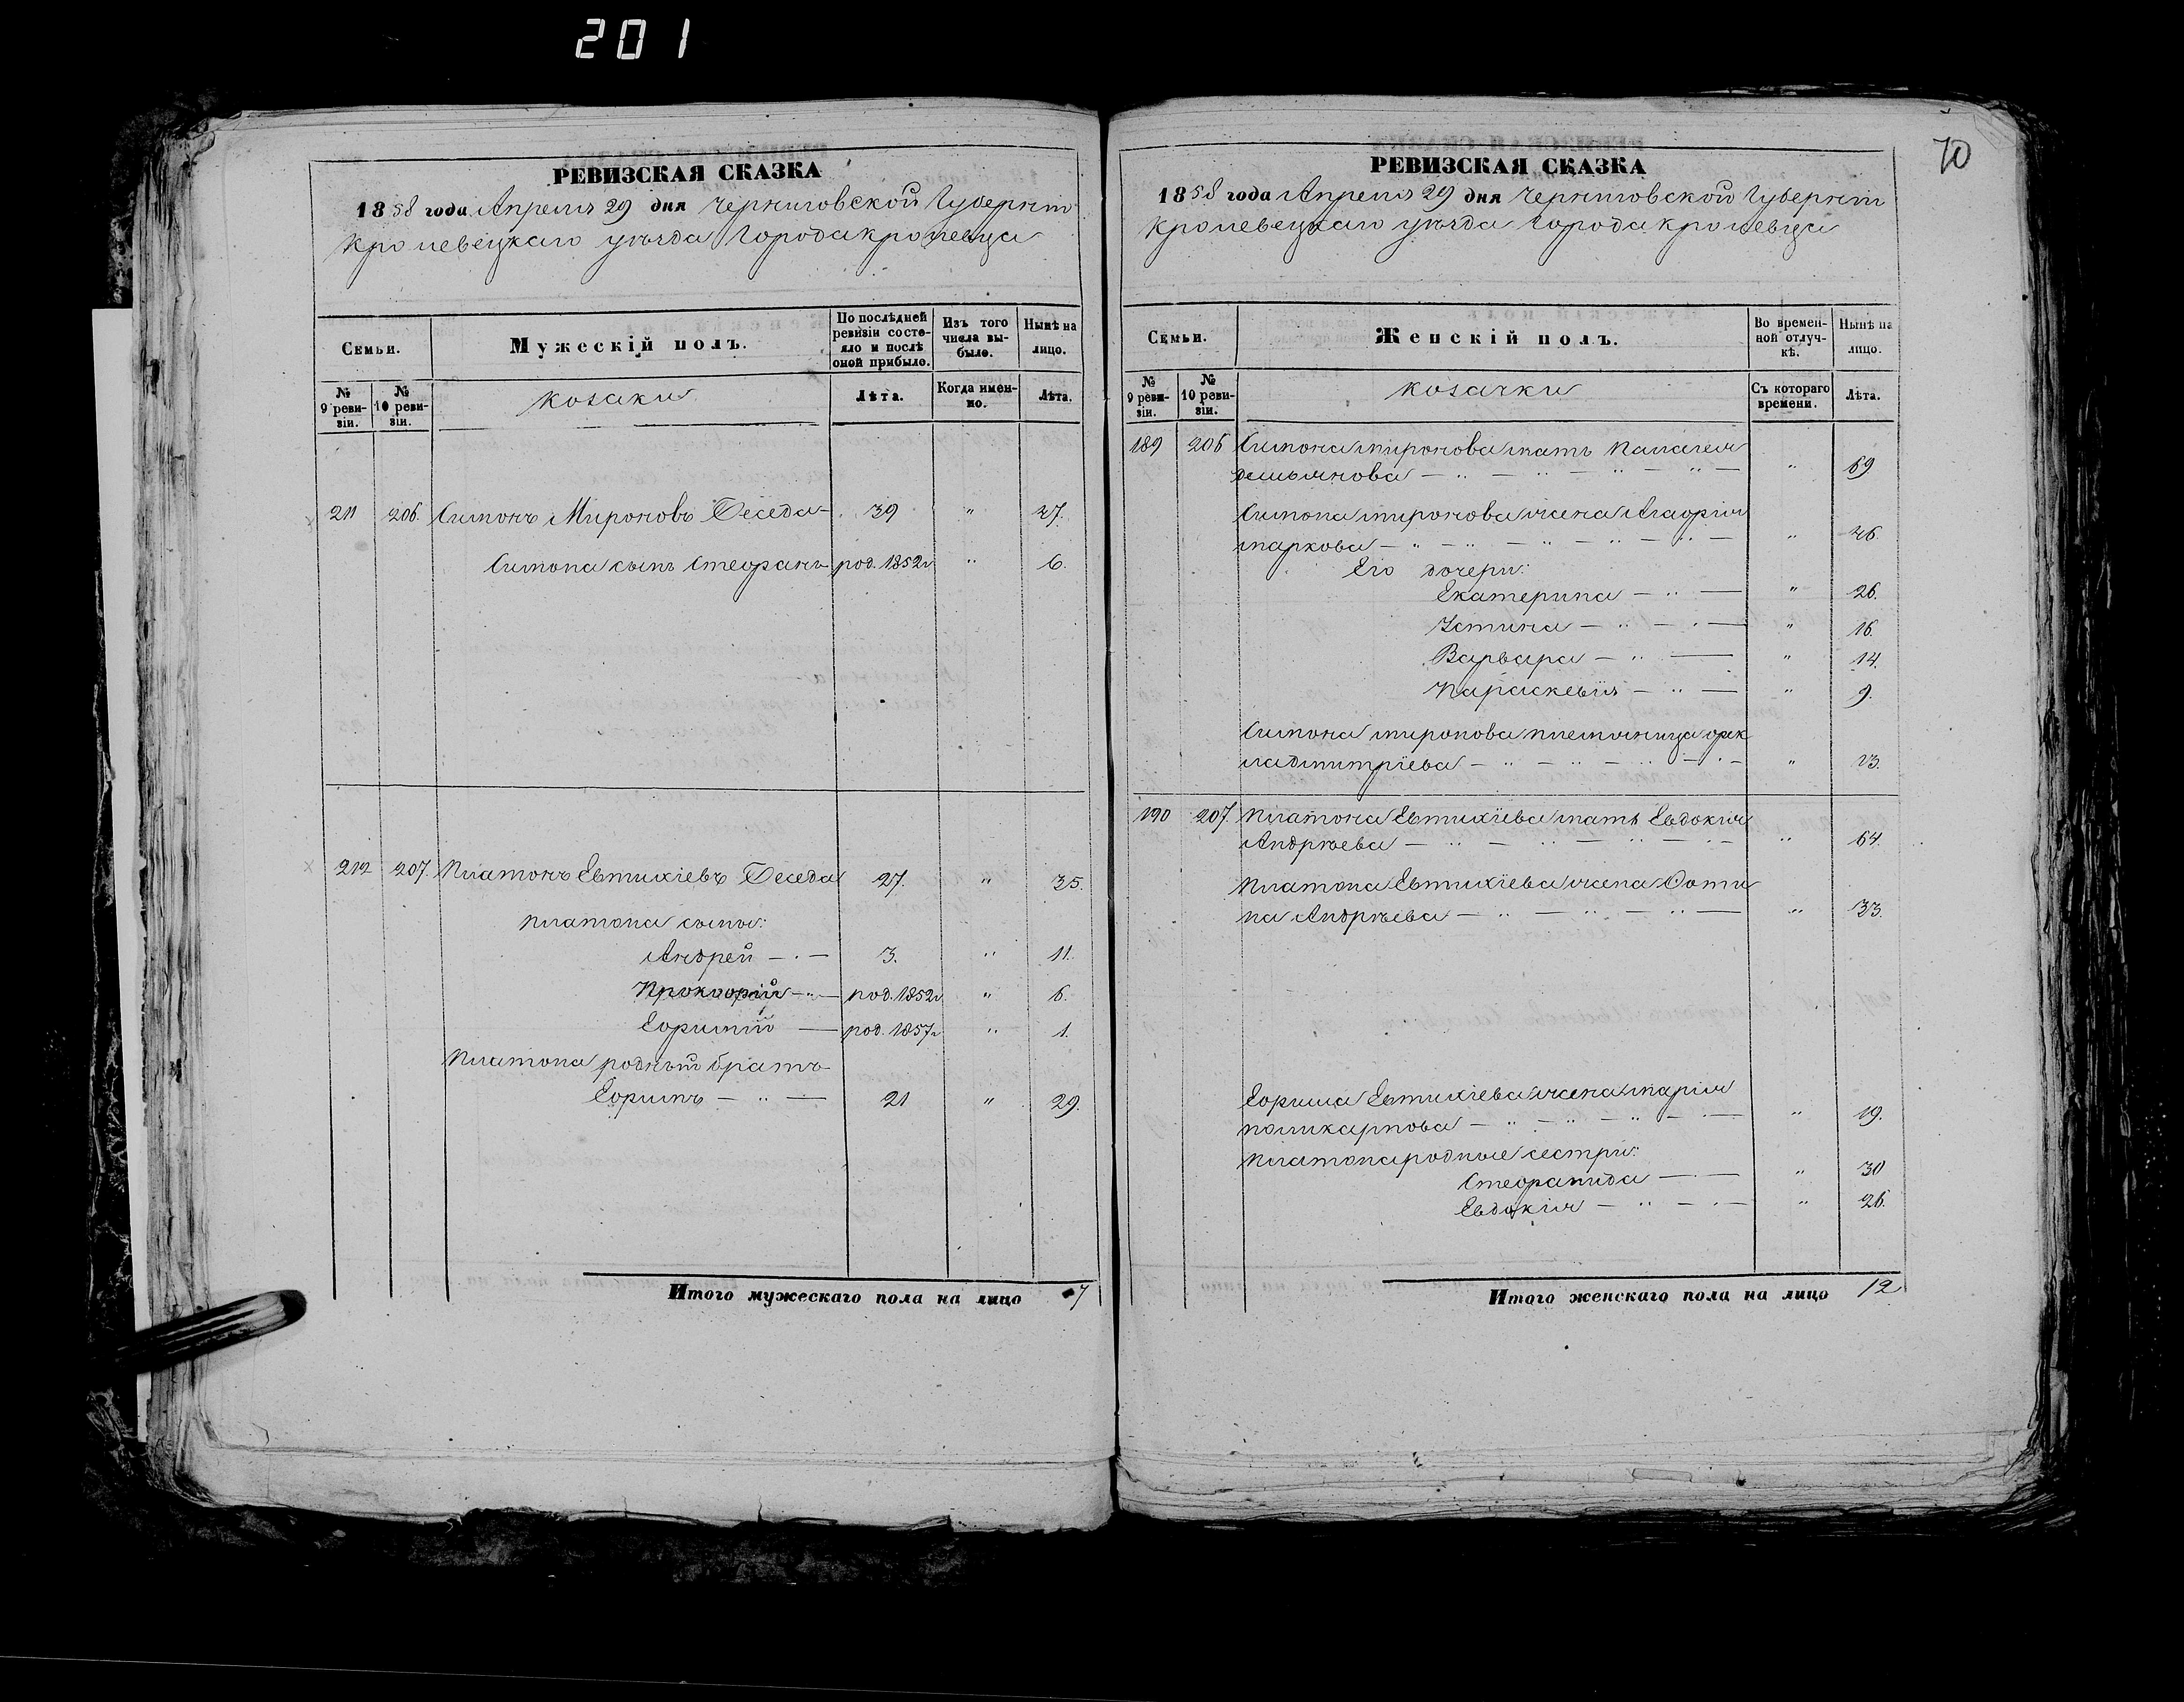 201
РЕВИЗСКАЯ СКАЗКА
1858 года Апреля 29 дня Черниговской Губерніи
Кролевецкаго уѣзда Города Кролевца
Семьи.
Мужескій полъ.
По послѣдней ревизіи состояло и послѣ оной прибыло.
Изъ того числа выбыло.
Нынѣ на лицо.
№ 9 ревизіи.
№ 10 ревизіи.
Козаки
Лѣта.
Когда именно.
Лѣта.
211 206. Симонъ Мироновъ Беседа 39 " 47.
Симона сынъ Стефанъ род. 1852г " 6.
212 207. Платонъ Евтихіевъ Беседа 27. " 35.
Платона сыны:
Андрей 3. " 11.
Прокофій род. 1852г " 6.
Ефимій род. 1857г " 1.
Платона родный братъ
Ефимъ 21 " 29.
Итого мужескаго пола на лицо 7
70
РЕВИЗСКАЯ СКАЗКА
1858 года Апреля 29 дня Черниговской Губерніи
Кролевецкаго уѣзда Города Кролевца
Семьи.
Женскій полъ.
Во временной отлучкѣ.
Нынѣ на лицо.
№ 9 ревизіи.
№ 10 ревизіи.
Козачки
Съ котораго времени.
Лѣта.
189 206 Симона Миронова мать Палагея
Демьянова " 69
Симона Миронова жена Агафія
Маркова " 46.
Его дочери:
Екатерина " 26.
Устина " 16.
Варвара " 14.
Параскевія " 9.
Симона Миронова племяница Фек
ла Дмитріева " 23.
190 207. Платона Евтихіева мать Евдокія
Андрѣева " 64.
Платона Евтихіева жена Фоти
на Андрѣева " 33.
Ефима Евтихіева жена Марія
Поликарпова " 19.
Платона родные сестри:
Стефанида " 30
Евдокія " 26.
Итого женскаго пола на лицо 12